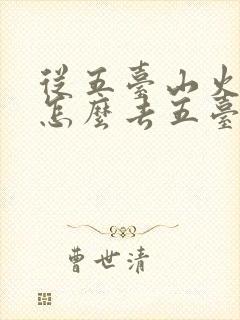 從五臺山火
怎麼去五臺
曹世清